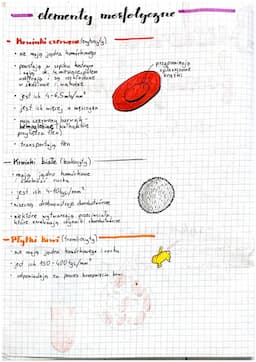 elementy morfotyczne
- Krwinki czerwone (erytrocyty)
• nie mają jądra komórkowego
• powstają w szpiku kostnym
żyją ok. 4 miesiące, potem
są rozkładane
w śledzionie i wątrobie
• jest ich 4-6,5 mln/mm³
• jest ich więcej u mężczyzn
• mają czerwony barwnik -
hemoglobinę (nietrwale
przyłącza tlen)
• transportują tlen
przypominają
spłaszczone
krążki
- Krwinki białe (leukocyty)
• mają jądro komórkowe
ruchu
• jest ich 4-10 tys/mm³
• niszczą drobnoustroje chorobotwórcze
• niektóre wytwarzają przeciwciała,
które zwalczają czynniki chorobotwórcze
- Płytki krwi (trombocyty)
• nie mają jądra komórkowego i ruchu
• jest ich 150-400 tys/mm³
• odpowiadają za proces krzepnięcia krwi